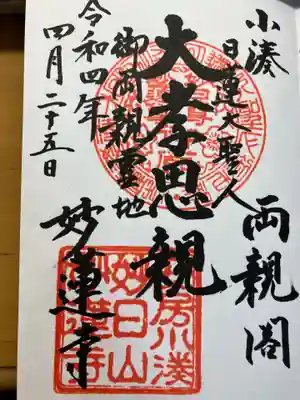 小湊
両親閣
日蓮大聖人
大孝思親
御両親霊地
妙蓮寺
令和四年
四月二十五日
妙日山
妙蓮寺